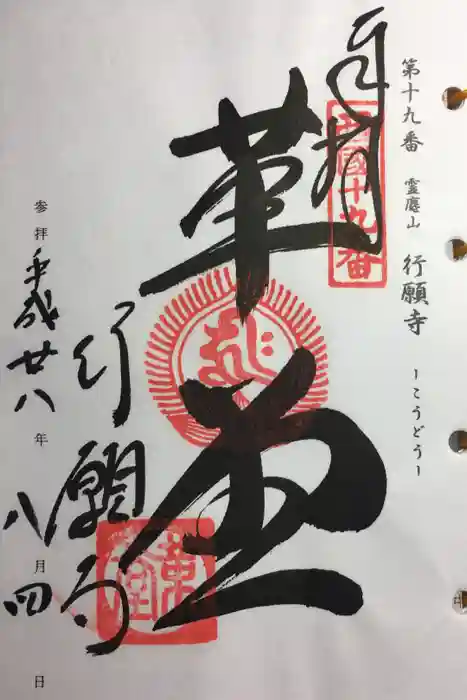 第十九番 靈麀山 行願寺 ーこうどうー
奉拝
西國十九番
革堂
行願寺
革堂
参拝 平成廿八年八月四日